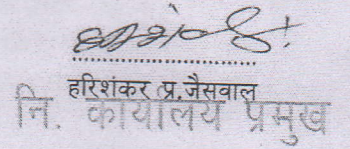 हरिशंकर प्र.जैसवाल
नि. कार्यालय प्रमुख